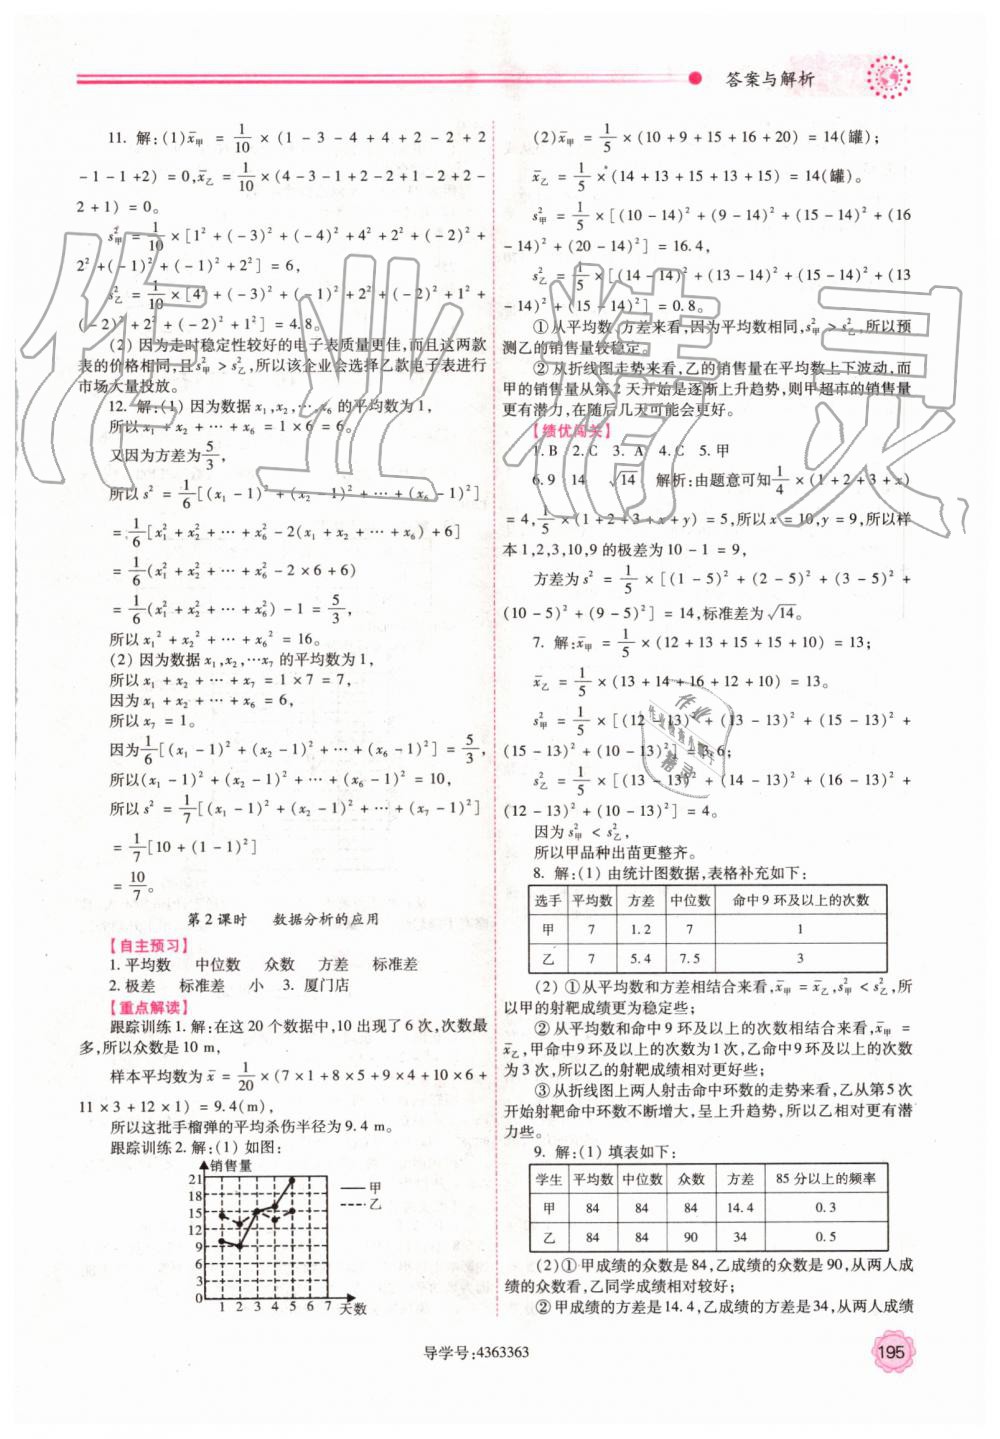 答案与解析
11. 解:(1)x̄甲 = 1/10 ×(1-3-4+4+2-2+2
-1-1+2) = 0,x̄乙 = 1/10 ×(4-3-1+2-2+1-2+2-
2+1) = 0。
s²甲 = 1/10 ×[1²+(-3)²+(-4)²+4²+2²+(-2)²+
2²+(-1)²+(-1)²+2²] = 6,
s²乙 = 1/10 ×[4²+(-3)²+(-1)²+2²+(-2)²+1²+
(-2)²+2²+(-2)²+1²] = 4.8。
(2)因为走时稳定性较好的电子表质量更佳,而且这两款
表的价格相同,且s²甲 > s²乙,所以该企业会选择乙款电子表进行
市场大量投放。
12. 解:(1)因为数据 x₁,x₂,⋯,x₆ 的平均数为1,
所以 x₁ + x₂ + ⋯ + x₆ = 1×6 = 6。
又因为方差为5/3,
所以 s² = 1/6[(x₁-1)²+(x₂-1)²+⋯+(x₆-1)²]
= 1/6[x₁²+x₂²+⋯+x₆²-2(x₁+x₂+⋯+x₆)+6]
= 1/6(x₁²+x₂²+⋯+x₆²-2×6+6)
= 1/6(x₁²+x₂²+⋯+x₆²)-1 = 5/3,
所以 x₁²+x₂²+⋯+x₆² = 16。
(2)因为数据 x₁,x₂,⋯x₇ 的平均数为1,
所以 x₁ + x₂ + ⋯ + x₇ = 1×7 = 7,
因为 x₁ + x₂ + ⋯ + x₆ = 6,
所以 x₇ = 1。
因为1/6[(x₁-1)²+(x₂-1)²+⋯+(x₆-1)²] = 5/3,
所以(x₁-1)²+(x₂-1)²+⋯+(x₆-1)² = 10,
所以 s² = 1/7[(x₁-1)²+(x₂-1)²+⋯+(x₇-1)²]
= 1/7[10+(1-1)²]
= 10/7。
第2课时 数据分析的应用
【自主预习】
1. 平均数 中位数 众数 方差 标准差
2. 极差 标准差 小 3. 厦门店
【重点解读】
跟踪训练1. 解:在这20个数据中,10出现了6次,次数最
多,所以众数是10 m,
样本平均数为 x̄ = 1/20 ×(7×1+8×5+9×4+10×6+
11×3+12×1) = 9.4(m),
所以这批手榴弹的平均杀伤半径为9.4 m。
跟踪训练2. 解:(1)如图:
销售量
21
18
15
12
9
6
3
0
1 2 3 4 5 6 7 天数
甲
乙
(2)x̄甲 = 1/5 ×(10+9+15+16+20) = 14(罐);
x̄乙 = 1/5 ×(14+13+15+13+15) = 14(罐)。
s²甲 = 1/5 ×[(10-14)²+(9-14)²+(15-14)²+(16
-14)²+(20-14)²] = 16.4,
s²乙 = 1/5 ×[(14-14)²+(13-14)²+(15-14)²+(13
-14)²+(15-14)²] = 0.8。
①从平均数、方差来看,因为平均数相同,s²甲 > s²乙,所以预
测乙的销售量较稳定。
②从折线图走势来看,乙的销售量在平均数上下波动,而
甲的销售量从第2天开始是逐渐上升趋势,则甲超市的销售量
更有潜力,在随后几天可能会更好。
【绩优闯关】
1. B 2. C 3. A 4. C 5. 甲
6. 9 14 √14 解析:由题意可知1/4 ×(1+2+3+x)
= 4,1/5 ×(1+2+3+x+y) = 5,所以 x = 10,y = 9,所以样
本1,2,3,10,9的极差为10-1 = 9,
方差为 s² = 1/5 ×[(1-5)²+(2-5)²+(3-5)²+
(10-5)²+(9-5)²] = 14,标准差为√14。
7. 解:x̄甲 = 1/5 ×(12+13+15+15+10) = 13;
x̄乙 = 1/5 ×(13+14+16+12+10) = 13。
s²甲 = 1/5 ×[(12-13)²+(13-13)²+(15-13)²+
(15-13)²+(10-13)²] = 3.6;
s²乙 = 1/5 ×[(13-13)²+(14-13)²+(16-13)²+
(12-13)²+(10-13)²] = 4。
因为 s²甲 < s²乙,
所以甲品种出苗更整齐。
8. 解:(1)由统计图数据,表格补充如下:
选手 平均数 方差 中位数 命中9环及以上的次数
甲 7 1.2 7 1
乙 7 5.4 7.5 3
(2)①从平均数和方差相结合来看,x̄甲 = x̄乙,s²甲 < s²乙,所
以甲的射靶成绩更为稳定些;
②从平均数和命中9环及以上的次数相结合来看,x̄甲 =
x̄乙,甲命中9环及以上的次数为1次,乙命中9环及以上的次数
为3次,所以乙的射靶成绩相对更好些;
③从折线图上两人射击命中环数的走势来看,乙从第5次
开始射靶命中环数不断增大,呈上升趋势,所以乙相对更有潜
力些。
9. 解:(1)填表如下:
学生 平均数 中位数 众数 方差 85分以上的频率
甲 84 84 84 14.4 0.3
乙 84 84 90 34 0.5
(2)①甲成绩的众数是84,乙成绩的众数是90,从两人成
绩的众数看,乙同学成绩相对较好;
②甲成绩的方差是14.4,乙成绩的方差是34,从两人成绩
导学号:4363363
195
作业精灵